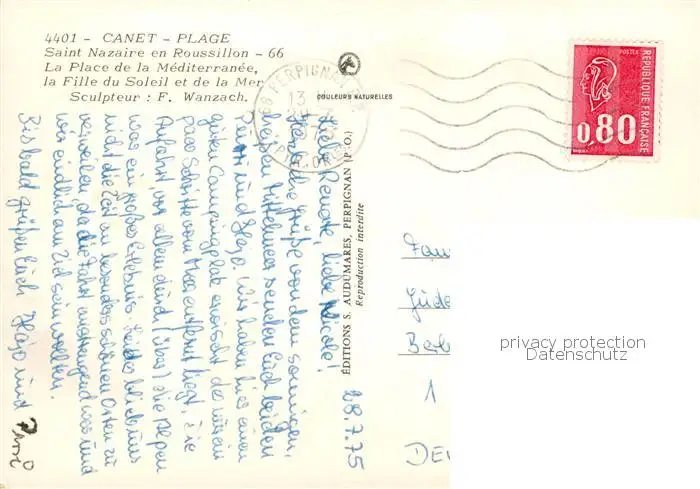 4401 - CANET - PLAGE
Saint Nazaire en Roussillon - 66
La Place de la Méditerranée,
la Fille du Soleil et de la Mer
Sculpteur : F. Wanzach.
COULEURS NATURELLES
66 PERPIGNAN
13
POSTES
RÉPUBLIQUE FRANÇAISE
0,80
ÉDITIONS S. AUDUMARES, PERPIGNAN (P.-O.)
Reproduction interdite
28.7.75
Liebe Renate, liebe Nicole!
Herzliche Grüße von dem sonnigen,
heißen Mittelmeer senden Euch beiden
und Hajo. Wir haben hier einen
guten Campingplatz erwischt, der nur ein
paar Schritte vom Meer entfernt liegt. Die
Anfahrt, vor allem durch die Alpen
war ein großes Erlebnis. Leider blieb uns
nicht die Zeit an besonders schönen Orten zu
verweilen, da die Fahrt anstrengend war und
wir endlich am Ziel sein wollten.
Bis bald grüßen Euch Hajo und
1
privacy protection
Datenschutz